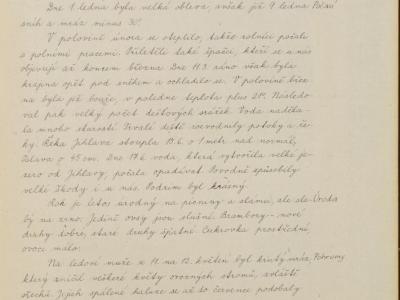 Dne 1. ledna byla velká obleva, avšak již 9. ledna
sníh a mráz minus 30°.
V polovině února se oteplilo, takže rolníci počali
s polními pracemi. Přiletěli také špačci, kteří se u nás
objevují až koncem března. Dne 11.3. ráno však byla
krajina opět pod sněhem a ochladilo se. V polovině břez-
na byla již bouře, v poledne teplota plus 21°. Následo-
val pak velký počet dešťových srážek. Voda naděla-
la mnoho starostí. Trvalé deště rozvodnily potoky a ře-
ky. Řeka Jihlava stoupla 13.6. o 1 metr nad normál,
o 45 cm. Dne 17.6. voda, která vytvořila velké je-
zero od Jihlavy, počala opadávat. Povodně způsobily
velké škody i u nás. Podzim byl krásný.
Rok je letos úrodný na pícniny a slámu, ale ne úroda
by na zrno. Jedině ovsy jsou slušné. Brambory - nové
druhy dobré, staré druhy špatné. Cukrovka prostřední,
ovoce málo.
Na ledové muže z 11. na 12. květen byl krutý mráz,
který zničil veškeré květy ovocných stromů, zvláště
ořechů. Jejich spálené haluze se až do července podobaly